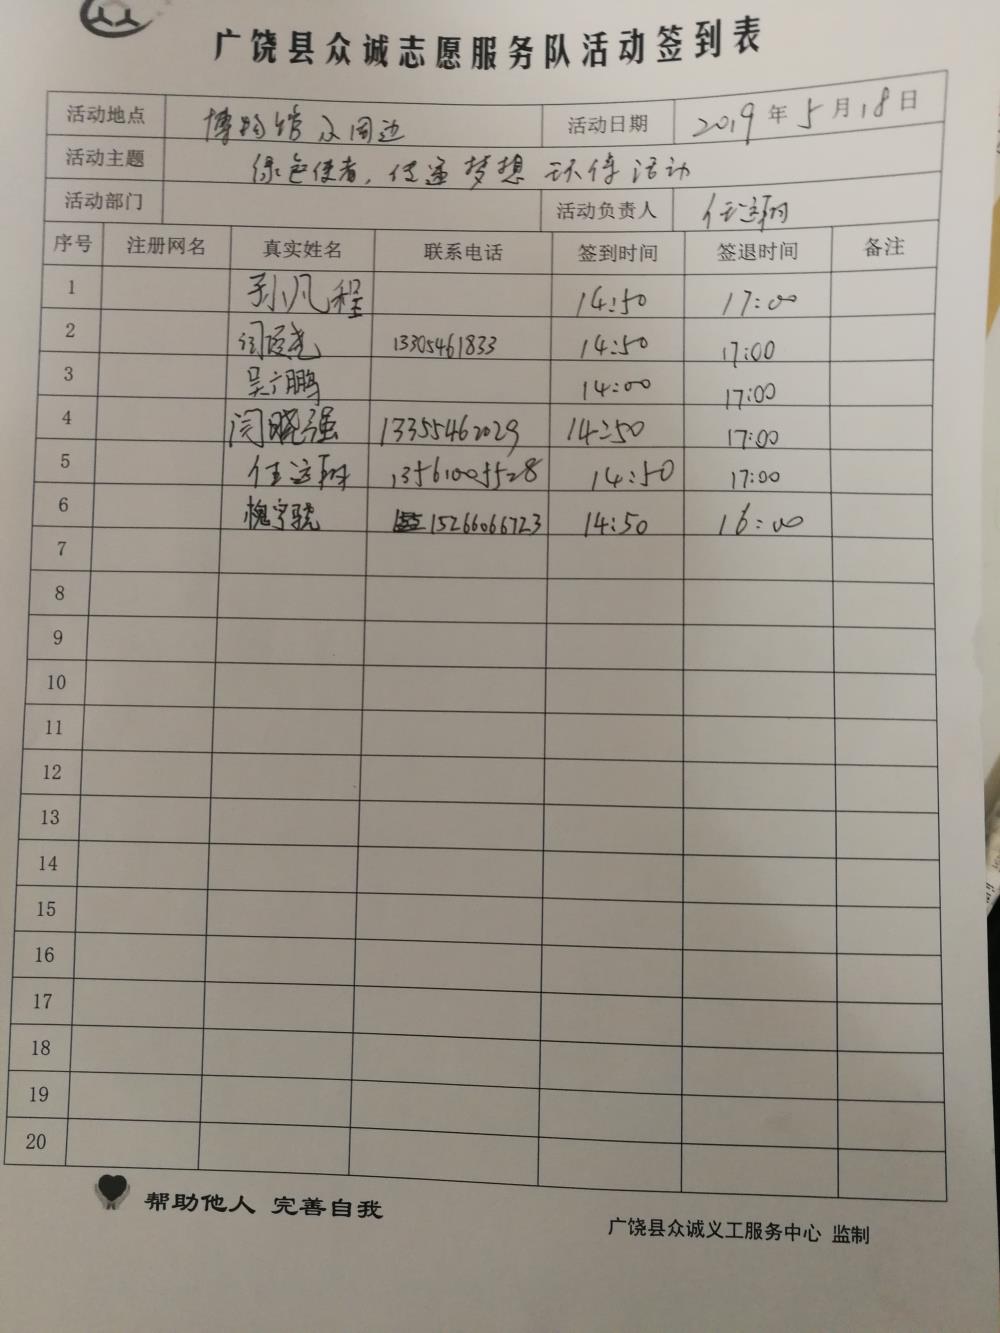 广饶县众诚志愿服务队活动签到表
活动地点 博物馆及周边 活动日期 2019年5月18日
活动主题 绿色使者，传递梦想 环保活动
活动部门 活动负责人 任运翔
序号 注册网名 真实姓名 联系电话 签到时间 签退时间 备注
1 孙凡程 14:50 17:00
2 13305461833 14:50 17:00
3 吴广鹏 14:00 17:00
4 闫晓强 13355462029 14:50 17:00
5 任运翔 13561005528 14:50 17:00
6 15266066723 14:50 16:00
7
8
9
10
11
12
13
14
15
16
17
18
19
20
帮助他人 完善自我
广饶县众诚义工服务中心 监制